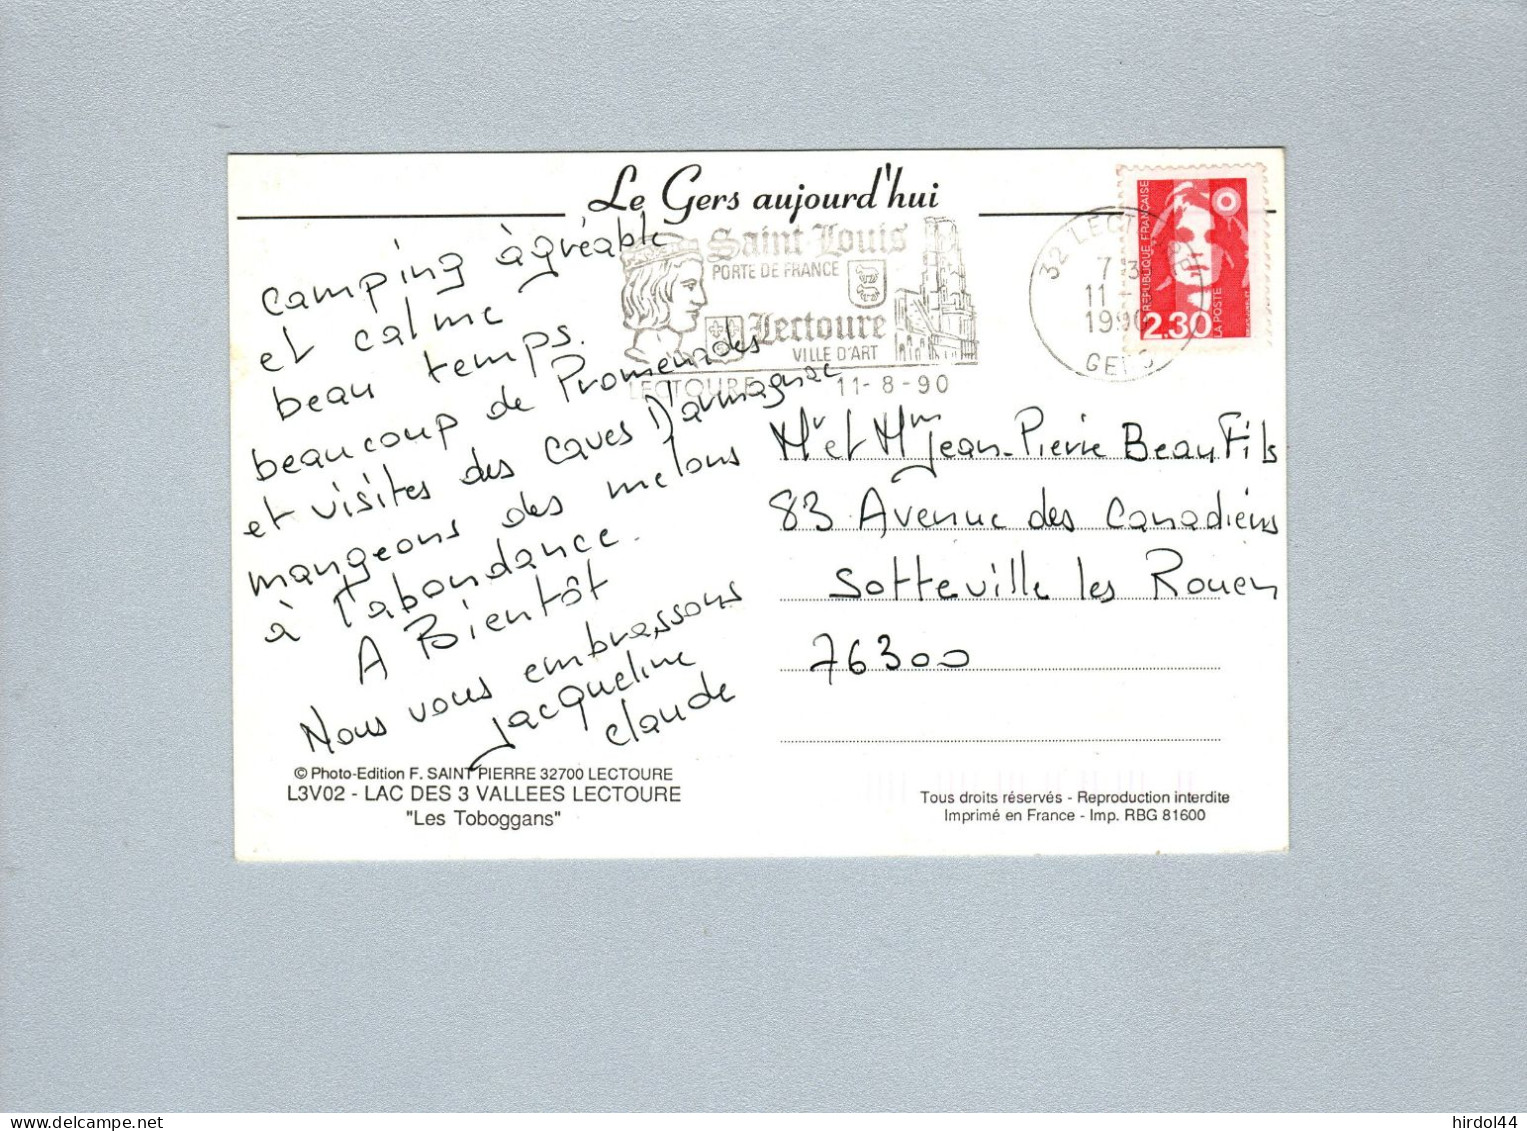 Le Gers aujourd'hui
Saint Louis
PORTE DE FRANCE
Lectoure
VILLE D'ART
LECTOURE 11-8-90
32 LECT
11
1990
GERS
REPUBLIQUE FRANÇAISE
LA POSTE
2.30
camping àgréable
et calme
beau temps.
beaucoup de Promenades
et visites des caves D'armagnac
mangeons des melons
à l'abondance.
A Bientôt
Nous vous embrassons
jacqueline
claude
Mr et Mme jean-Pierre Beaufils
83 Avenue des Canadiens
Sotteville les Rouen
76300
© Photo-Edition F. SAINT PIERRE 32700 LECTOURE
L3V02 - LAC DES 3 VALLEES LECTOURE
"Les Toboggans"
Tous droits réservés - Reproduction interdite
Imprimé en France - Imp. RBG 81600
www.delcampe.net
hirdol44